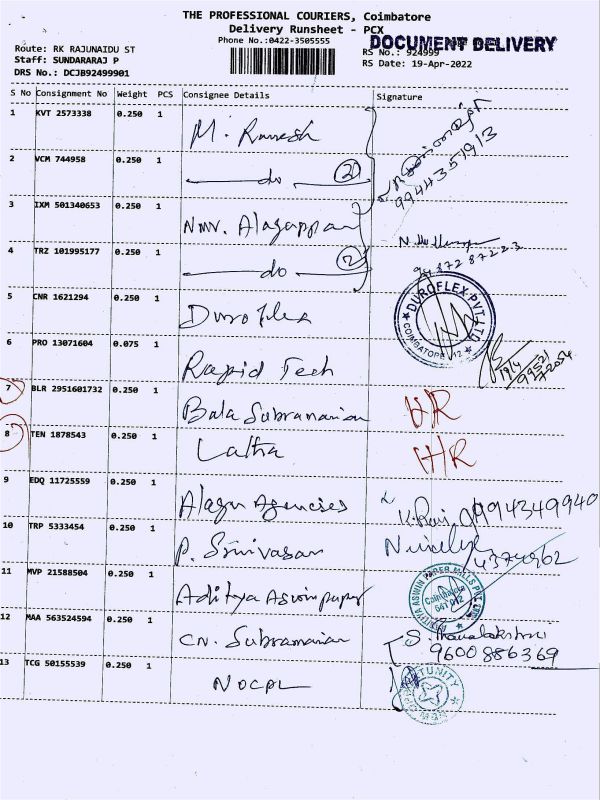 THE PROFESSIONAL COURIERS, Coimbatore
Delivery Runsheet - PCX
Phone No.:0422-3505555
DOCUMENT DELIVERY
Route: RK RAJUNAIDU ST
Staff: SUNDARARAJ P
DRS No.: DCJB92499901
RS No.: 924999
RS Date: 19-Apr-2022
S No Consignment No Weight PCS Consignee Details Signature
1 KVT 2573338 0.250 1 M. Ramesh
9944351913
2 VCM 744958 0.250 1 do 2
3 IXM 501340653 0.250 1 Nmv. Alagappan
4 TRZ 101995177 0.250 1 do 2
9437287223
5 CNR 1621294 0.250 1 Duroflex
DUROFLEX PVT LTD
COIMBATORE 12
6 PRO 13071604 0.075 1 Rapid Tech
19/4
7 BLR 2951601732 0.250 1 Bala Subramanian HR
8 TEN 1878543 0.250 1 Latha HR
9 EDQ 11725559 0.250 1 Alagu Agencies K. Ravi 9994349940
10 TRP 5333454 0.250 1 P. Srinivasan
4374962
11 MVP 21588504 0.250 1 Aditya Aswin paper
ADITHYA ASWIN PAPER MILLS PVT
Coimbatore
641 012
12 MAA 563524594 0.250 1 CN. Subramanian
9600886369
13 TCG 50155539 0.250 1 NOCPL